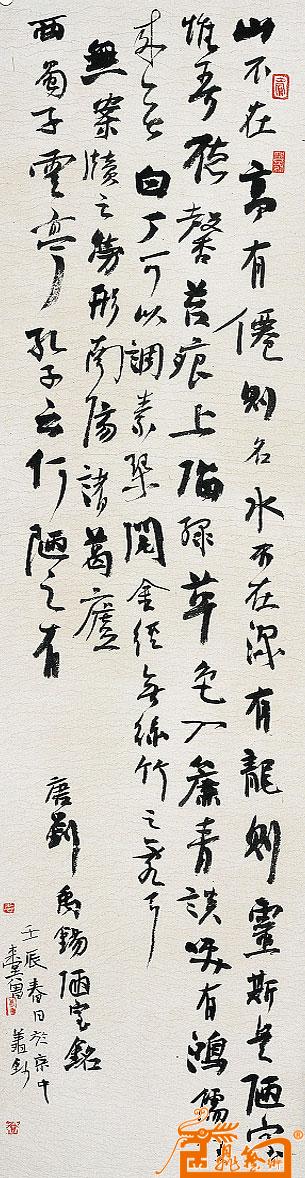 山不在高有僊則名水不在深有龍則靈斯是陋室
惟吾德馨苔痕上階綠草色入簾青談笑有鴻儒
來無白丁可以調素琴閱金經無絲竹之亂耳
無案牘之勞形南陽諸葛廬
西蜀子雲亭孔子云何陋之有
唐劉禹錫陋室銘
壬辰春日於京中